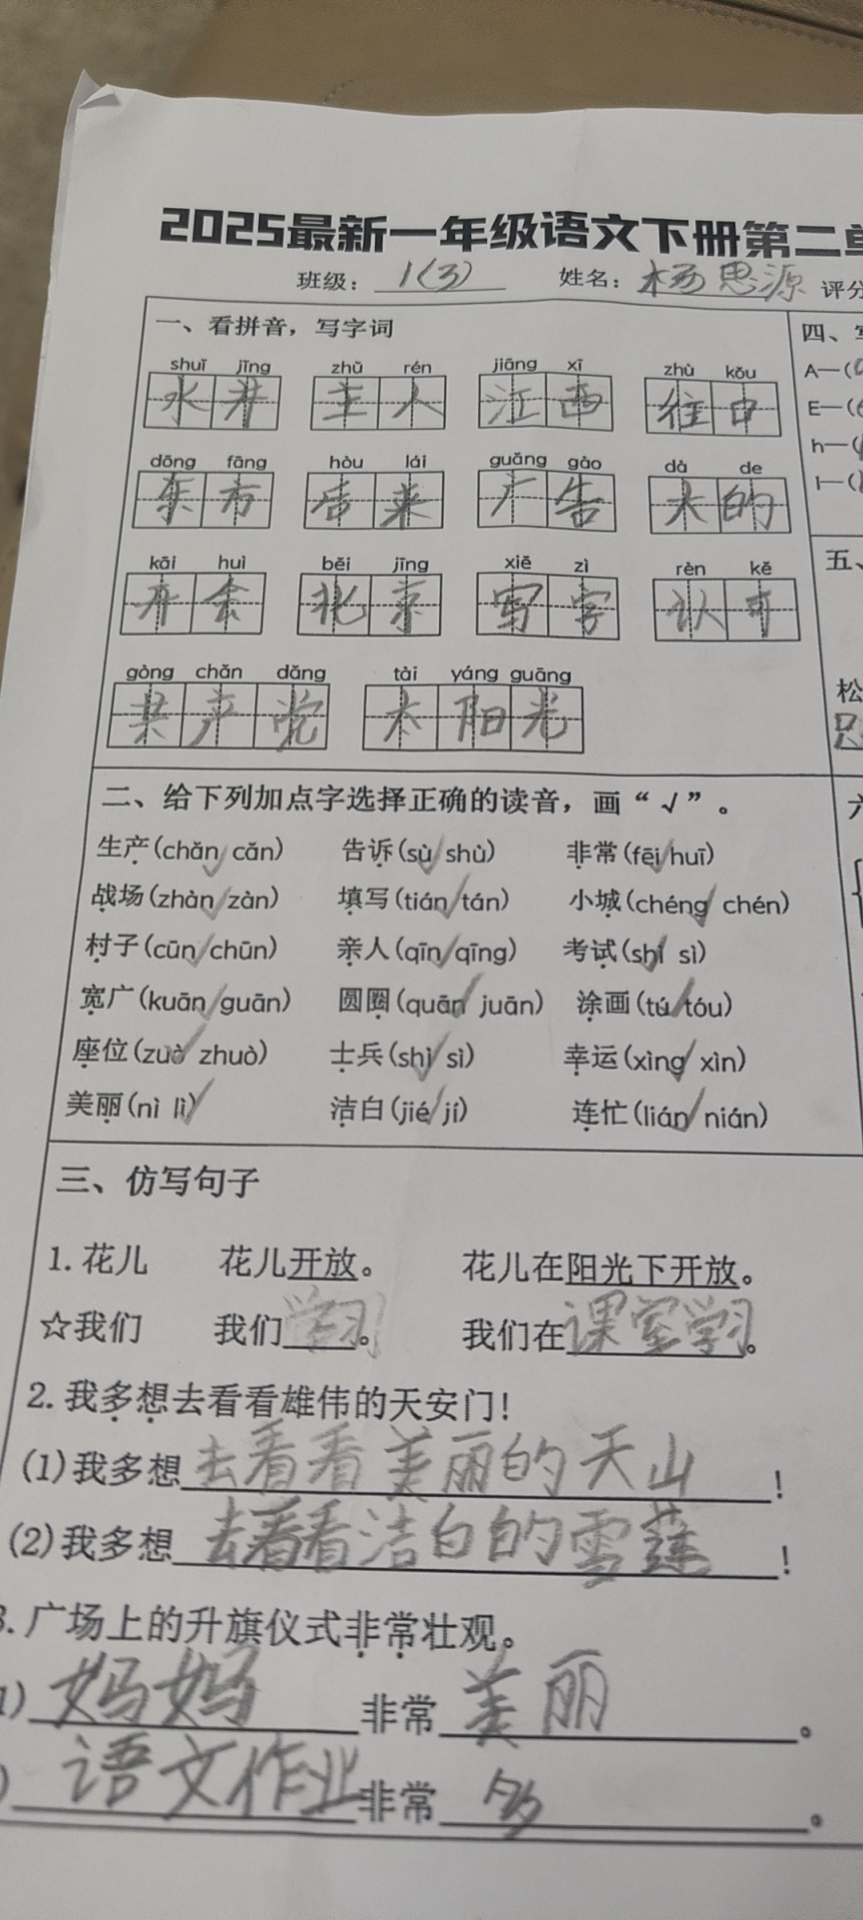 2025最新一年级语文下册第二单
班级：1(3) 姓名：杨思源 评分
一、看拼音，写字词
shuǐ jǐng zhǔ rén jiāng xī zhù kǒu
水井 主人 江西 住口
dōng fāng hòu lái guǎng gào dà de
东方 后来 广告 大的
kāi huì běi jīng xiě zì rèn kě
开会 北京 写字 认可
gòng chǎn dǎng tài yáng guāng
共产党 太阳光
二、给下列加点字选择正确的读音，画“√”。
生产(chǎn√ cǎn) 告诉(sù√ shù) 非常(fēi√ huī)
战场(zhàn√ zàn) 填写(tián√ tán) 小城(chéng√ chén)
村子(cūn√ chūn) 亲人(qīn√ qīng) 考试(shì√ sì)
宽广(kuān√ guān) 圆圈(quān√ juān) 涂画(tú√ tóu)
座位(zuò√ zhuò) 士兵(shì√ sì) 幸运(xìng√ xìn)
美丽(nì lì√) 洁白(jié√ jí) 连忙(lián√ nián)
三、仿写句子
1. 花儿 花儿开放。 花儿在阳光下开放。
☆我们 我们学习。 我们在课室学习。
2. 我多想去看看雄伟的天安门！
(1)我多想去看看美丽的天山！
(2)我多想去看看洁白的雪莲！
3. 广场上的升旗仪式非常壮观。
1)妈妈非常美丽。
)语文作业非常多。
四、
A—(
E—(
h—(
I—(
五、
松
六